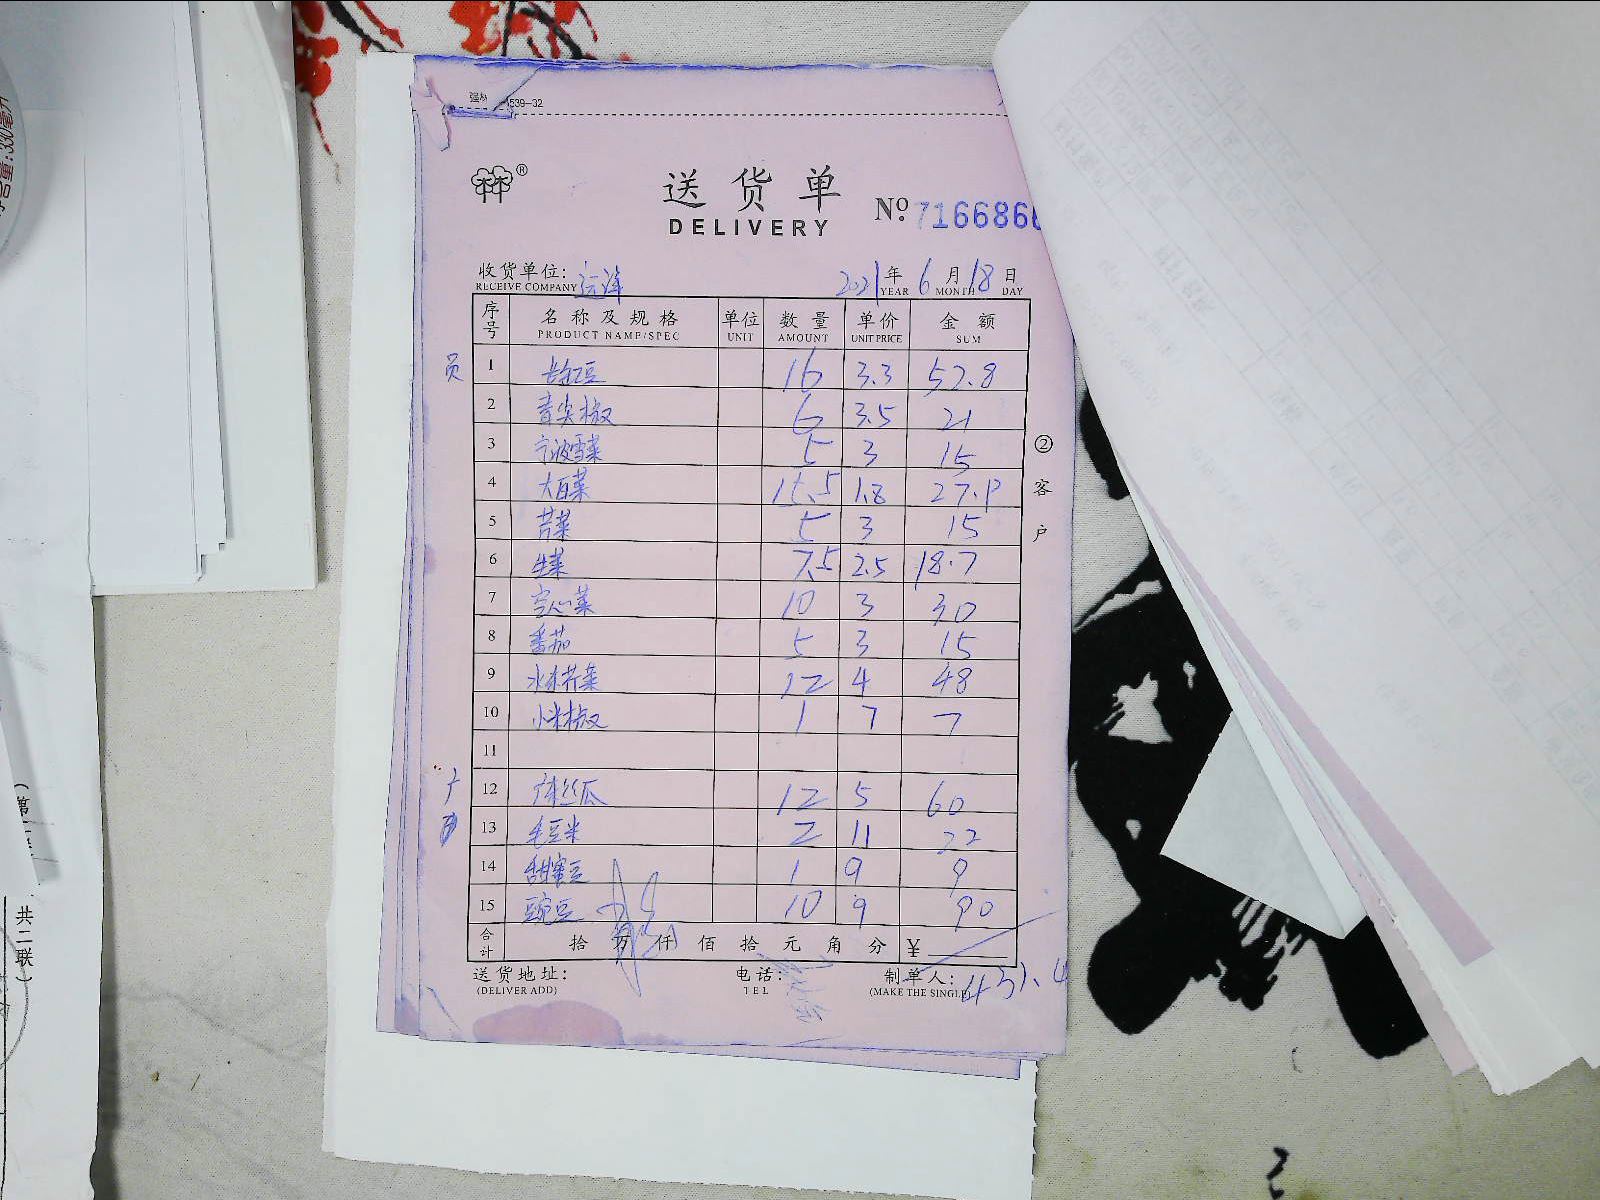 539-32
送货单
DELIVERY
№ 716686
收货单位: 远洋 2021年6月18日
RECEIVE COMPANY YEAR MONTH DAY
序号 名称及规格 单位 数量 单价 金额
PRODUCT NAME/SPEC UNIT AMOUNT UNIT PRICE SUM
员 1 长豇豆 16 3.3 52.8
2 青尖椒 6 3.5 21
3 宁波雪菜 5 3 15
4 大白菜 15.5 1.8 27.9
5 芹菜 5 3 15
6 生菜 7.5 2.5 18.7
7 空心菜 10 3 30
8 番茄 5 3 15
9 水东芥菜 12 4 48
10 小米椒 1 7 7
11
12 广东丝瓜 12 5 60
13 毛豆米 2 11 22
14 甜蜜豆 1 9 9
15 豌豆 10 9 90
合计 拾 万 仟 佰 拾 元 角 分 ¥
送货地址: 电话: 制单人: 431.4
(DELIVER ADD) TEL (MAKE THE SINGLE)
②客户
共二联)
量:330毫升